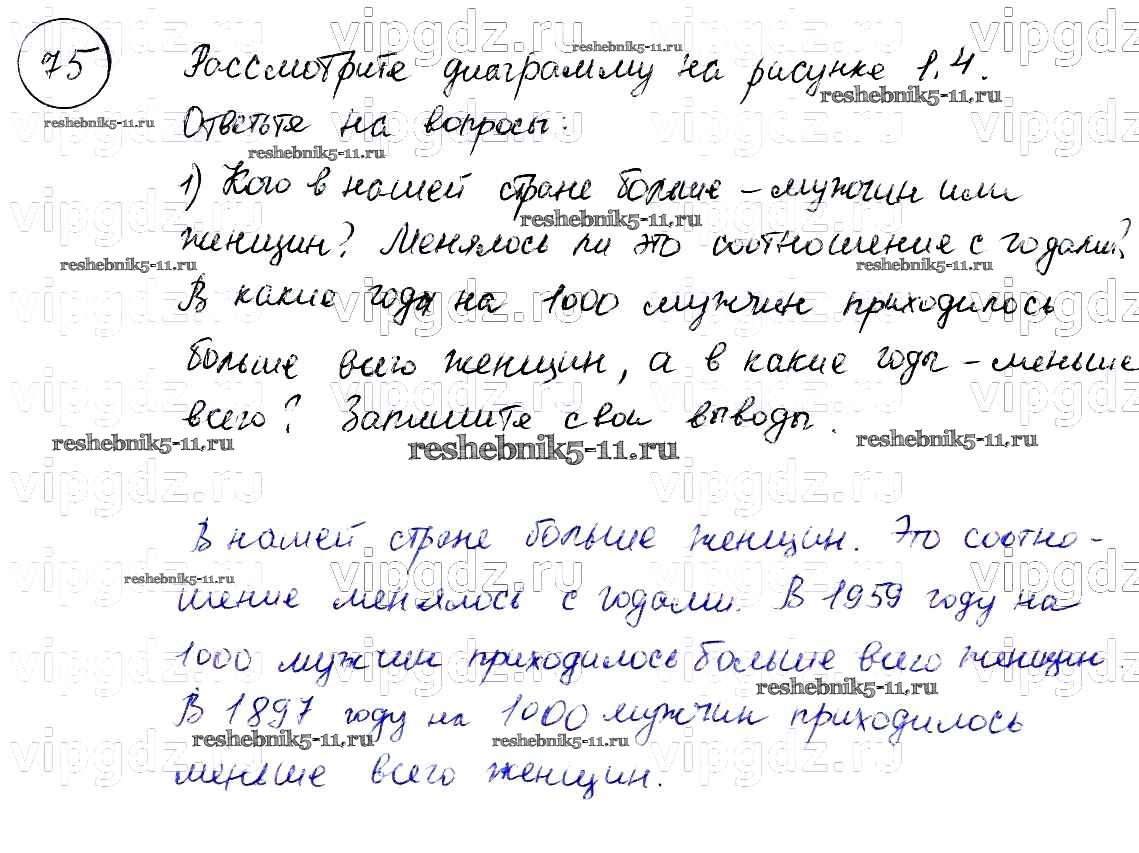 75
Рассмотрите диаграмму на рисунке 1.4.
Ответьте на вопросы:
1) Кого в нашей стране больше – мужчин или
женщин? Менялось ли это соотношение с годами?
В какие годы на 1000 мужчин приходилось
больше всего женщин, а в какие годы – меньше
всего? Запишите свои выводы.
В нашей стране больше женщин. Это соотно-
шение менялось с годами. В 1959 году на
1000 мужчин приходилось больше всего женщин.
В 1897 году на 1000 мужчин приходилось
меньше всего женщин.
vipgdz.ru
reshebnik5-11.ru